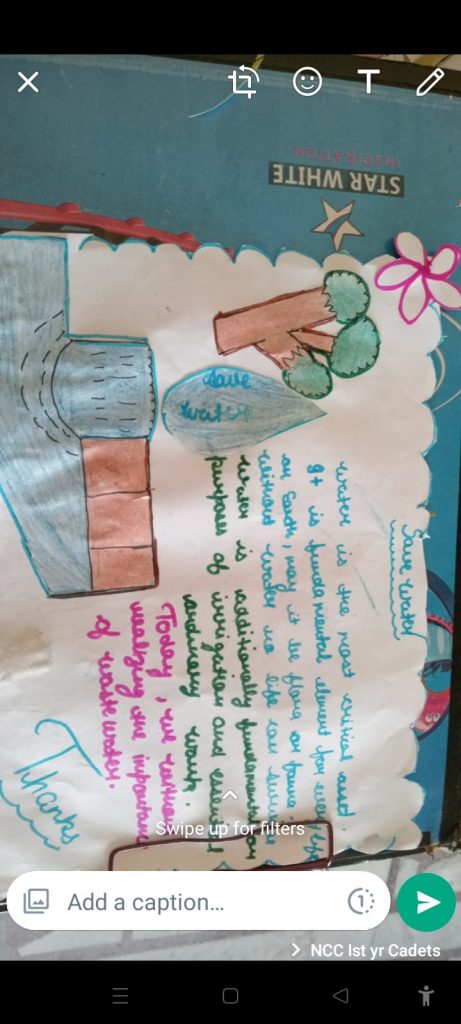 STAR WHITE
INSPIRATION
Save water
Save
water
water is the most critical and
It is fundamental element for every life
on Earth, may it be flora or fauna.
without water no life can survive
water is additionally fundamental for
purpass of and essential
ordinary work.
Today, we rather
realizing the importance
of waste water.
Thanks
Swipe up for filters
Add a caption...
1
NCC Ist yr Cadets